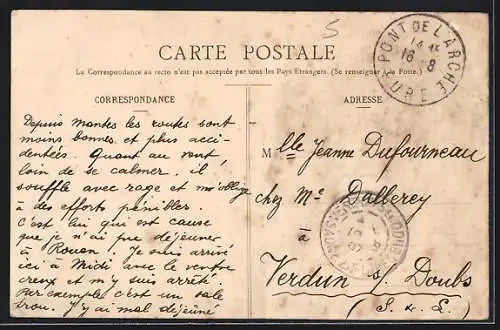 5
CARTE POSTALE
La Correspondance au recto n'est pas acceptée par tous les Pays Etrangers. (Se renseigner à la Poste.)
CORRESPONDANCE
Depuis Mantes les routes sont
moins bonnes et plus acci-
dentées. Quant au vent,
loin de se calmer, il
souffle avec rage et m'oblige
à des efforts pénibles.
C'est lui qui est cause
que je n'ai pu déjeuner
à Rouen. Je suis arrivé
ici à Midi avec le ventre
creux et m'y suis arrêté.
Par exemple c'est un sale
trou. J'y ai mal déjeuné
ADRESSE
Mlle Jeanne Dufourneau
chez Me Dallerey
à
Verdun s/ Doubs
(S. & L.)
PONT DE L'ARCHE
16 8
EURE
VERDUN-S-LE-DOUBS